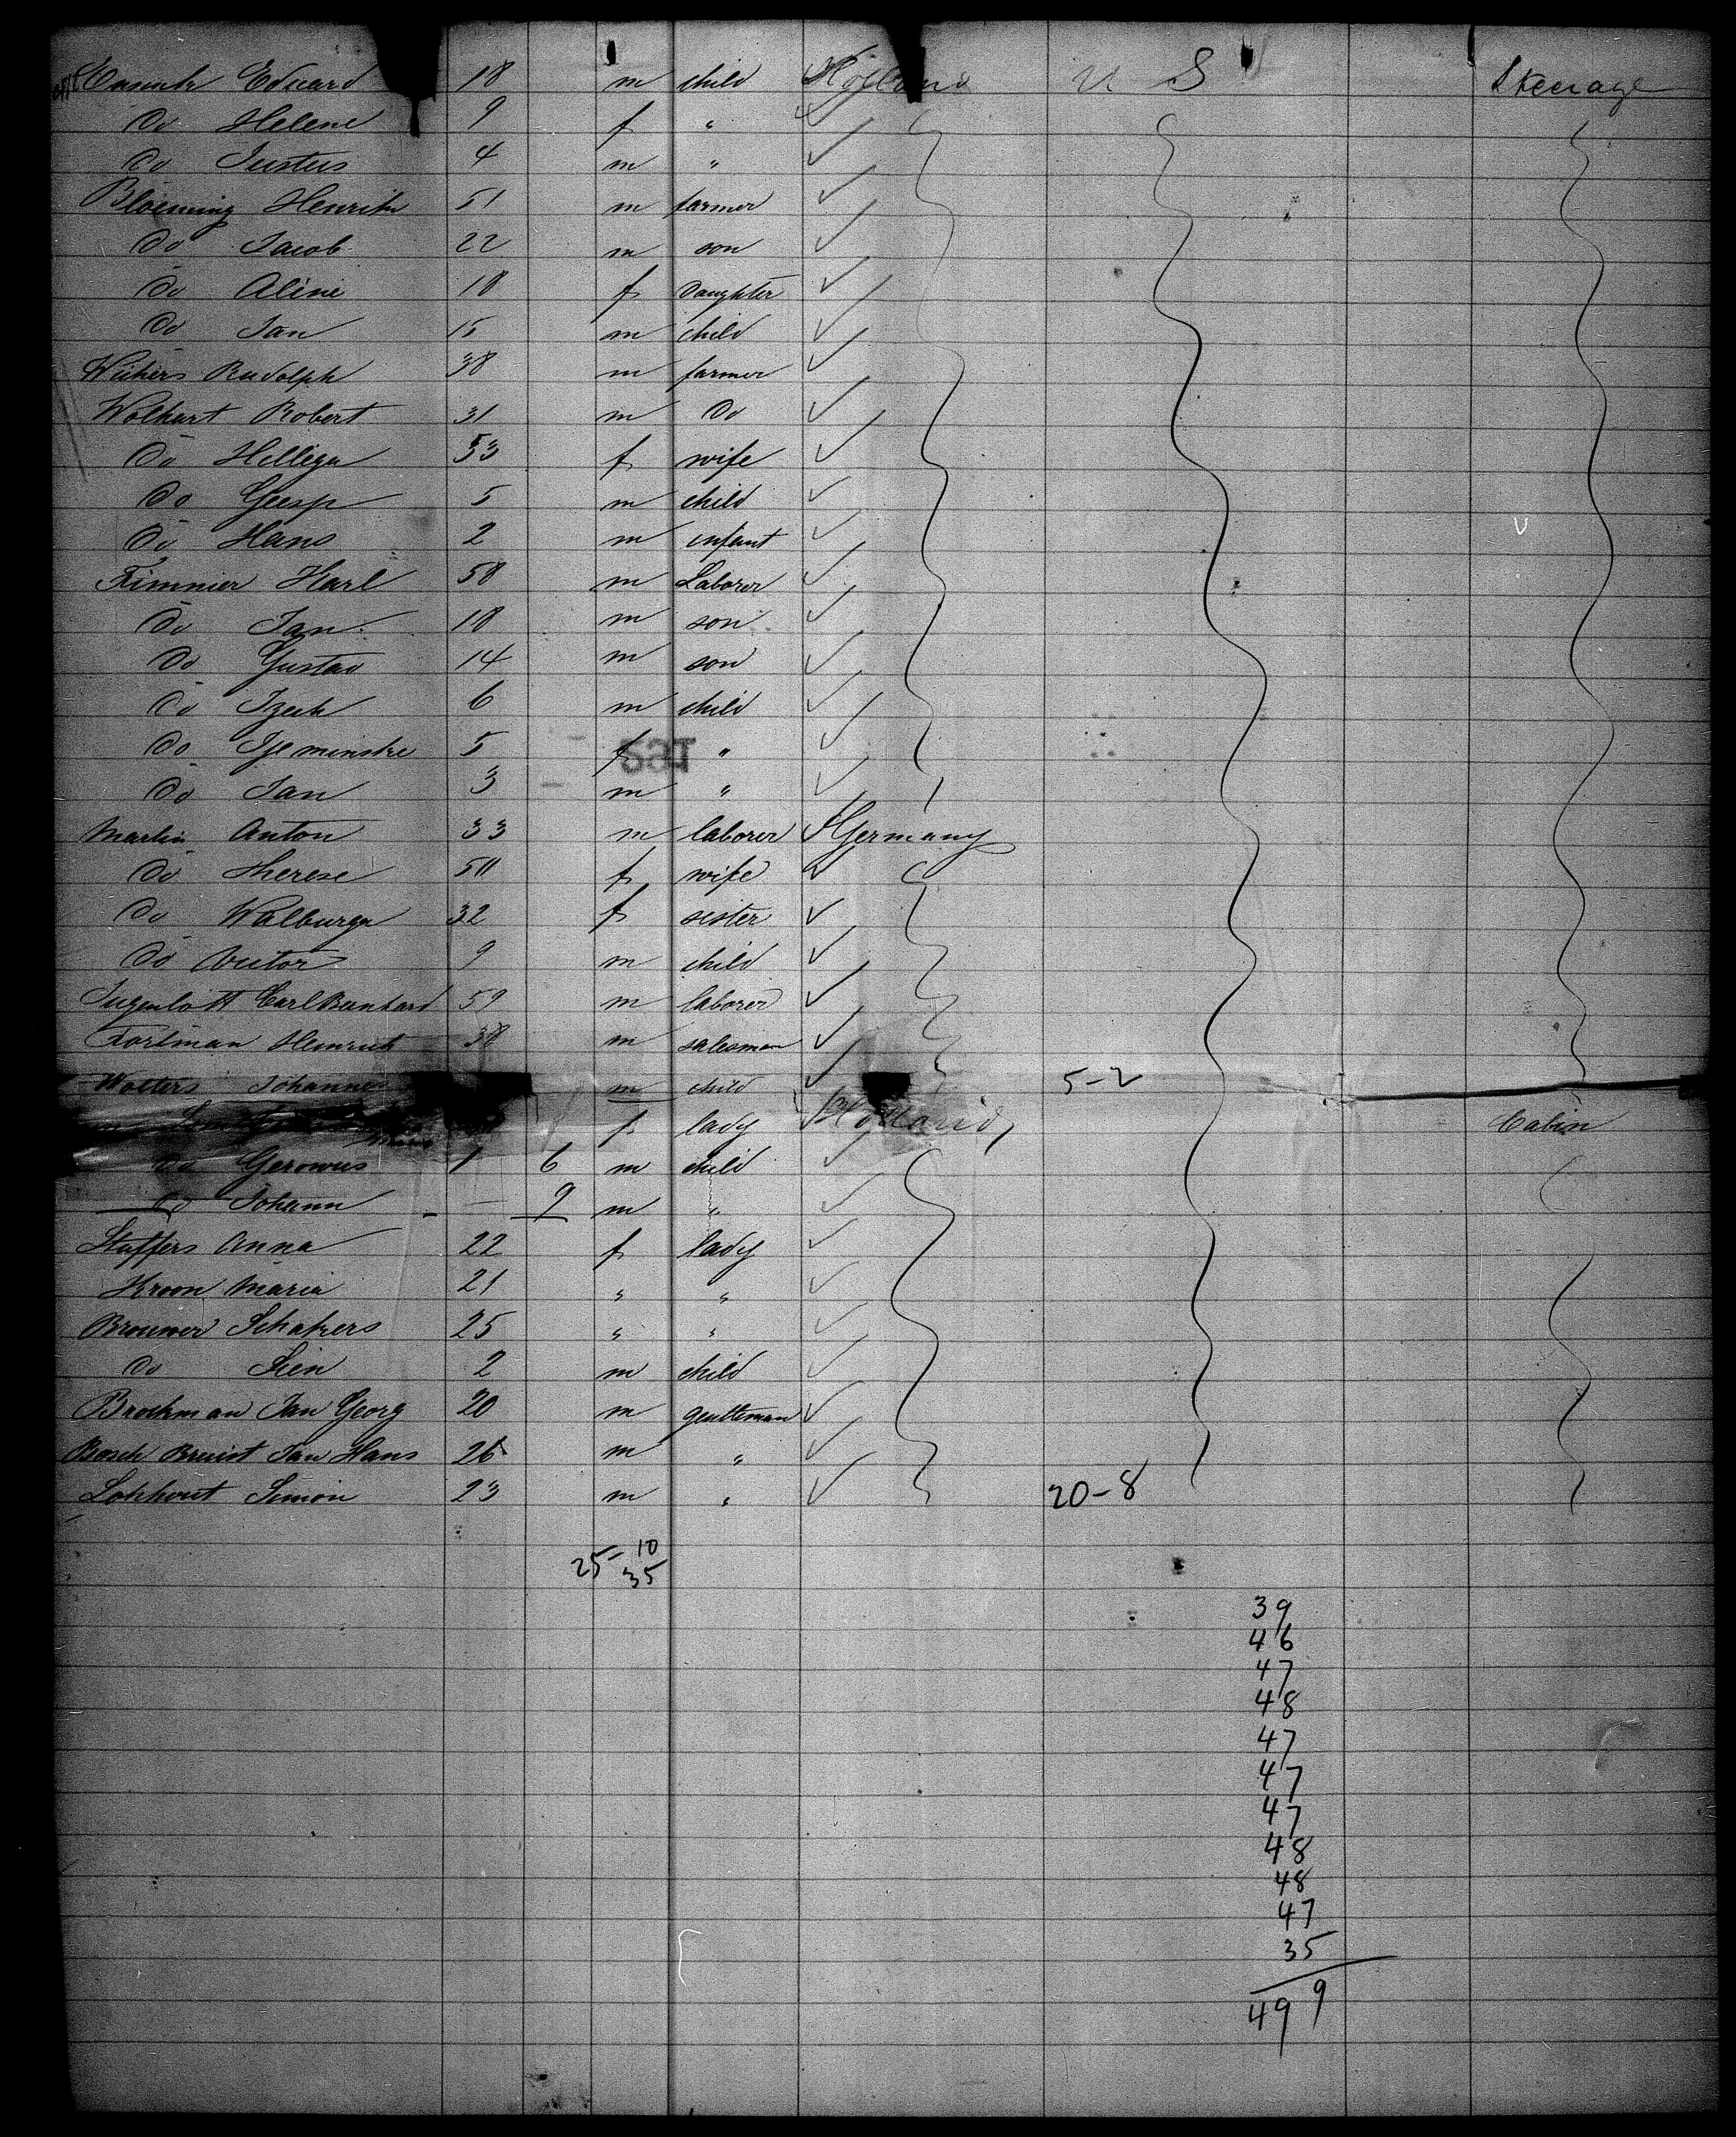 Eduard 18 m child Holland U S Steerage
Do Helene 9 f "
Do Justus 4 m "
Bloeming Henrik 51 m farmer
Do Jacob 22 m son
Do Aline 18 f Daughter
Do Jan 15 m child
Wichers Rudolph 38 m farmer
Wolkart Robert 31 m Do
Do Hellega 33 f wife
Do Geesp 5 m child
Do Hans 2 m infant
Timmier Karl 58 m Laborer
Do Jan 18 m son
Do Gustav 14 m son
Do 6 m child
Do 5 f "
Do Jan 3 m "
Martin Anton 33 m laborer Germany
Do Therese f wife
Do Walburga 32 f sister
Do Victor 9 m child
Carl Bernhard 59 m laborer
Fortman Heinrich 38 m salesman
Wolters Johannes m child 5-2
f lady Holland Cabin
Do Gerowus 1 6 m child
Do Johann - 9 m "
Steffers Anna 22 f lady
Kroon Maria 21 " "
Brouwer Schakers 25 " "
Do Sien 2 m child
Broekman Jan Georg 20 m gentleman
Bosch Bruist Jan Hans 26 m "
Lokhout Simon 23 m " 20-8
25-10
35
39
46
47
48
47
47
47
48
48
47
35
499